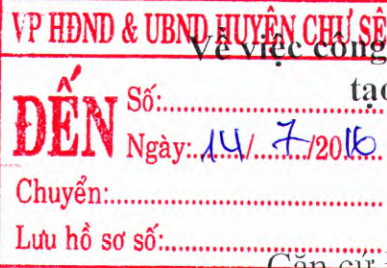 VP HĐND & UBND HUYỆN CHƯ SÊ
Về việc công
tạo
ĐẾN
Số:
Ngày: 14/ 7/2016
Chuyển:
Lưu hồ sơ số:
Căn cứ